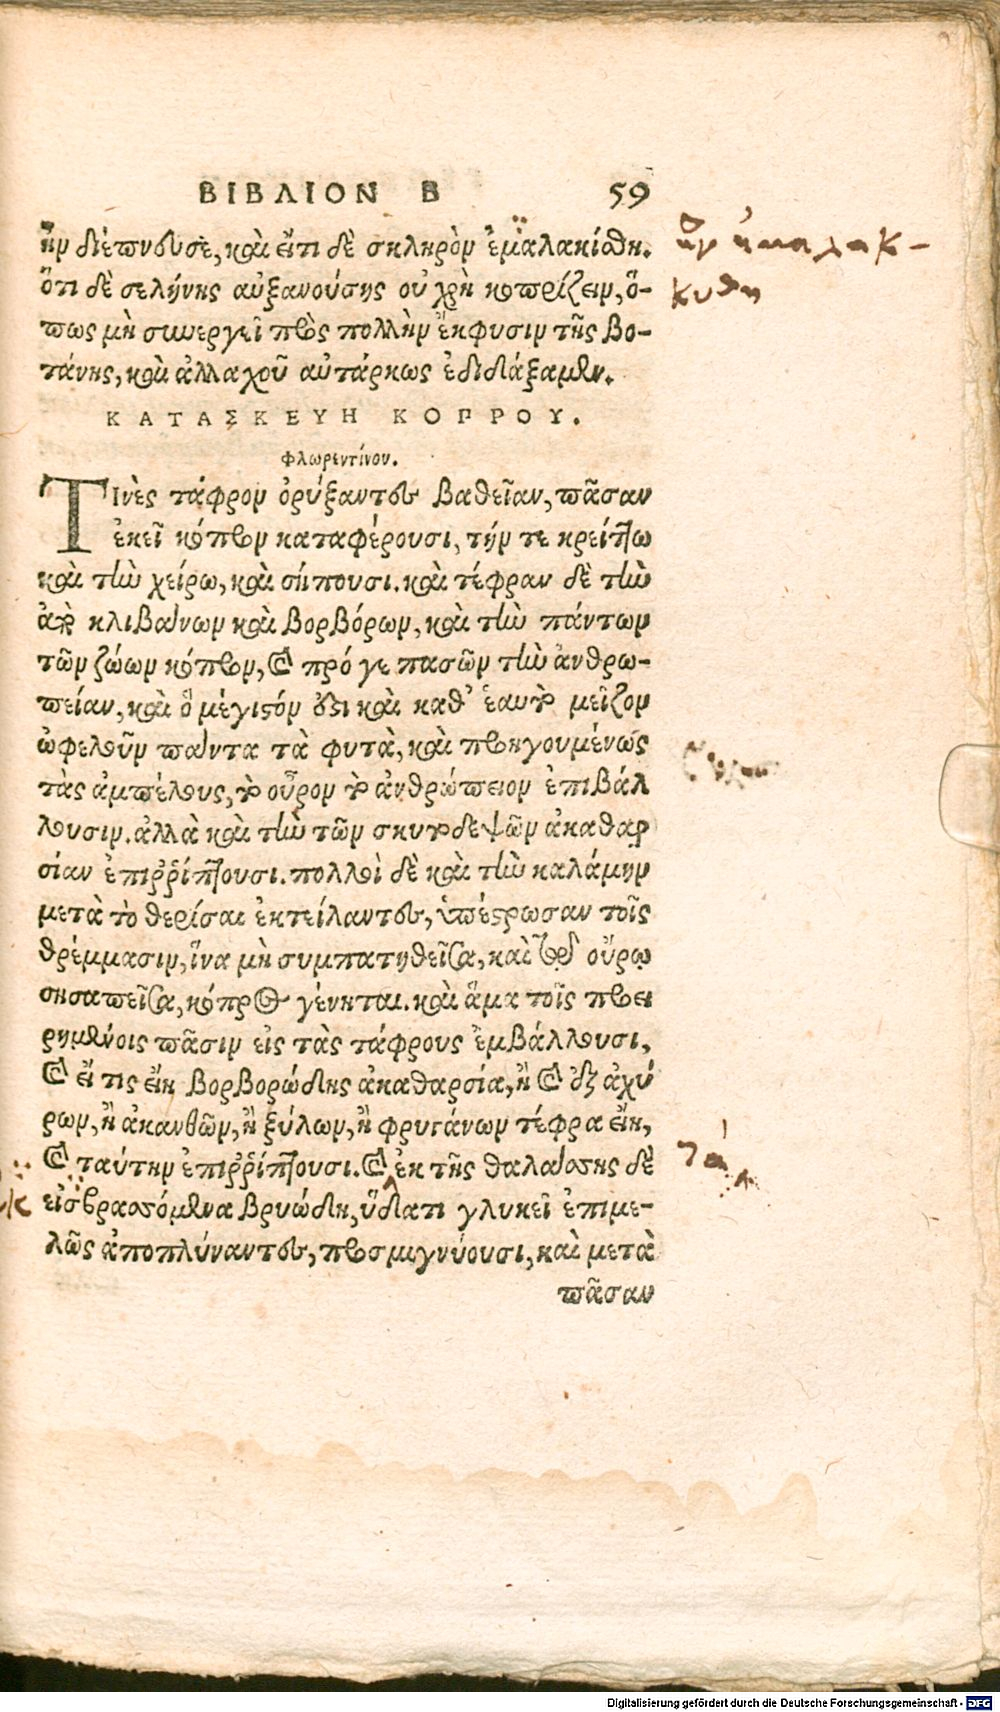 ΒΙΒΛΙΟΝ Β 59
ἢν διέπνευσε, καὶ εἴτι δὲ σκληρὸν ἐμαλακίσθη.
ὅτι δὲ σελήνης αὐξανούσης οὐ χρὴ κοπρίζειν, ὅ-
πως μὴ συνεργεῖ πρὸς πολλὴν ἔκφυσιν τῆς βο-
τάνης, καὶ ἀλλαχοῦ αὐτάρκως ἐδιδάξαμεν.
ΚΑΤΑΣΚΕΥΗ ΚΟΠΡΟΥ.
Φλωρεντίνου.
ΤΙνὲς τάφρον ὀρύξαντες βαθεῖαν, πᾶσαν
ἐκεῖ κόπρον καταφέρουσι, τήν τε κρείττω
καὶ τὴν χείρω, καὶ σήπουσι. καὶ τέφραν δὲ τὴν
ἀπὸ κλιβάνων καὶ βορβόρων, καὶ τὴν πάντων
τῶν ζώων κόπρον, καὶ πρό γε πασῶν τὴν ἀνθρω-
πείαν, καὶ ὃ μέγιστόν ἐστι καὶ καθ' ἑαυτὸ μεῖζον
ὠφελοῦν πάντα τὰ φυτὰ, καὶ προηγουμένως
τὰς ἀμπέλους, τὸ οὖρον τὸ ἀνθρώπειον ἐπιβάλ
λουσιν. ἀλλὰ καὶ τὴν τῶν σκυτοδεψῶν ἀκαθαρ
σίαν ἐπιῤῥίπτουσι. πολλοὶ δὲ καὶ τὴν καλάμην
μετὰ τὸ θερίσαι ἐκτείλαντες, ὑπέστρωσαν τοῖς
θρέμμασιν, ἵνα μὴ συμπατηθεῖσα, καὶ τῷ οὔρῳ
σησαπεῖσα, κόπρος γένηται. καὶ ἅμα τοῖς προει
ρημένοις πᾶσιν εἰς τὰς τάφρους ἐμβάλλουσι,
καὶ εἴ τις εἴη βορβορώδης ἀκαθαρσία, ἢ καὶ ἐξ ἀχύ
ρων, ἢ ἀκανθῶν, ἢ ξύλων, ἢ φρυγάνων τέφρα εἴη,
καὶ ταύτην ἐπιῤῥίπτουσι. καὶ ἐκ τῆς θαλάσσης δὲ
εἰσβρασσόμενα βρυώδη, ὕδατι γλυκεῖ ἐπιμε-
λῶς ἀποπλύναντες, προσμιγνύουσι, καὶ μετὰ
πᾶσαν
τά
κ
Digitalisierung gefördert durch die Deutsche Forschungsgemeinschaft - DFG